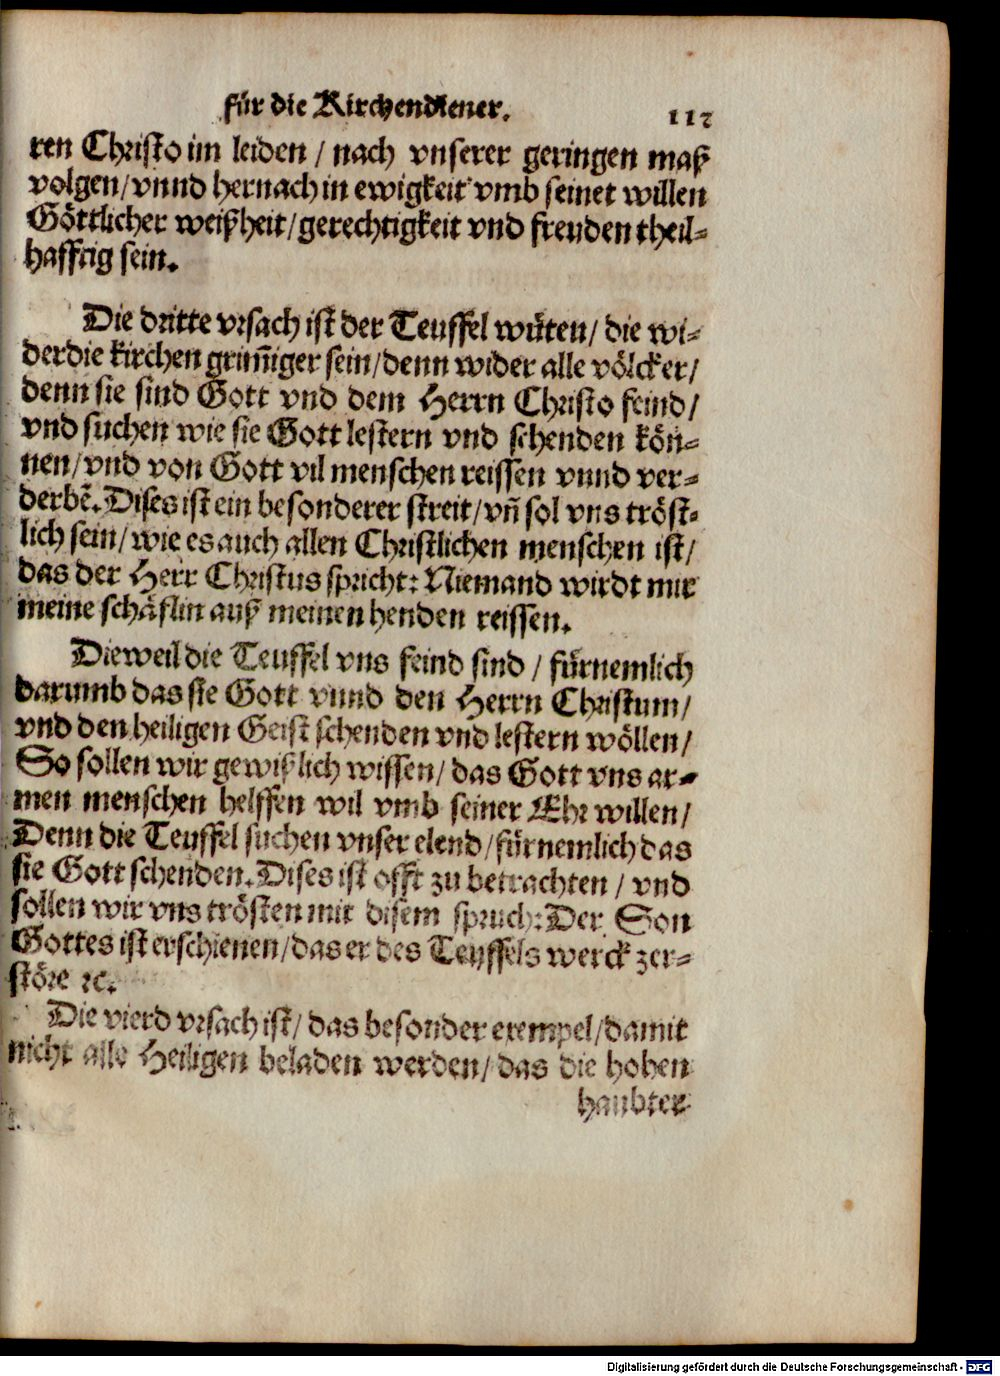 für die Kirchendiener. 112
ren Christo im leiden / nach vnserer geringen maß
volgen/vnnd hernach in ewigkeit vmb seinet willen
Göttlicher weißheit/gerechtigkeit vnd freuden theil-
hafftig sein.
Die dritte vrsach ist der Teuffel wüten/ die wi-
der die kirchen grim̄iger sein/denn wider alle völcker/
denn sie sind Gott vnd dem Herrn Christo feind/
vnd suchen wie sie Gott lestern vnd schenden kön-
nen/vnd von Gott vil menschen reissen vnnd ver-
derbẽ. Dises ist ein besonderer streit/vñ sol vns tröst-
lich sein/wie es auch allen Christlichen menschen ist/
das der Herr Christus spricht: Niemand wirdt mir
meine schäflin auß meinen henden reissen.
Dieweil die Teuffel vns feind sind / fürnemlich
darumb das sie Gott vnnd den Herrn Christum/
vnd den heiligen Geist schenden vnd lestern wöllen/
So sollen wir gewißlich wissen/ das Gott vns ar-
men menschen helffen wil vmb seiner Ehr willen/
Denn die Teuffel suchen vnser elend/fürnemlich das
sie Gott schenden. Dises ist offt zu betrachten / vnd
sollen wir vns trösten mit disem spruch: Der Son
Gottes ist erschienen/das er des Teuffels werck zer-
störe ꝛc.
Die vierd vrsach ist/ das besonder exempel/damit
nicht alle Heiligen beladen werden/das die hohen
haubter
Digitalisierung gefördert durch die Deutsche Forschungsgemeinschaft - DFG